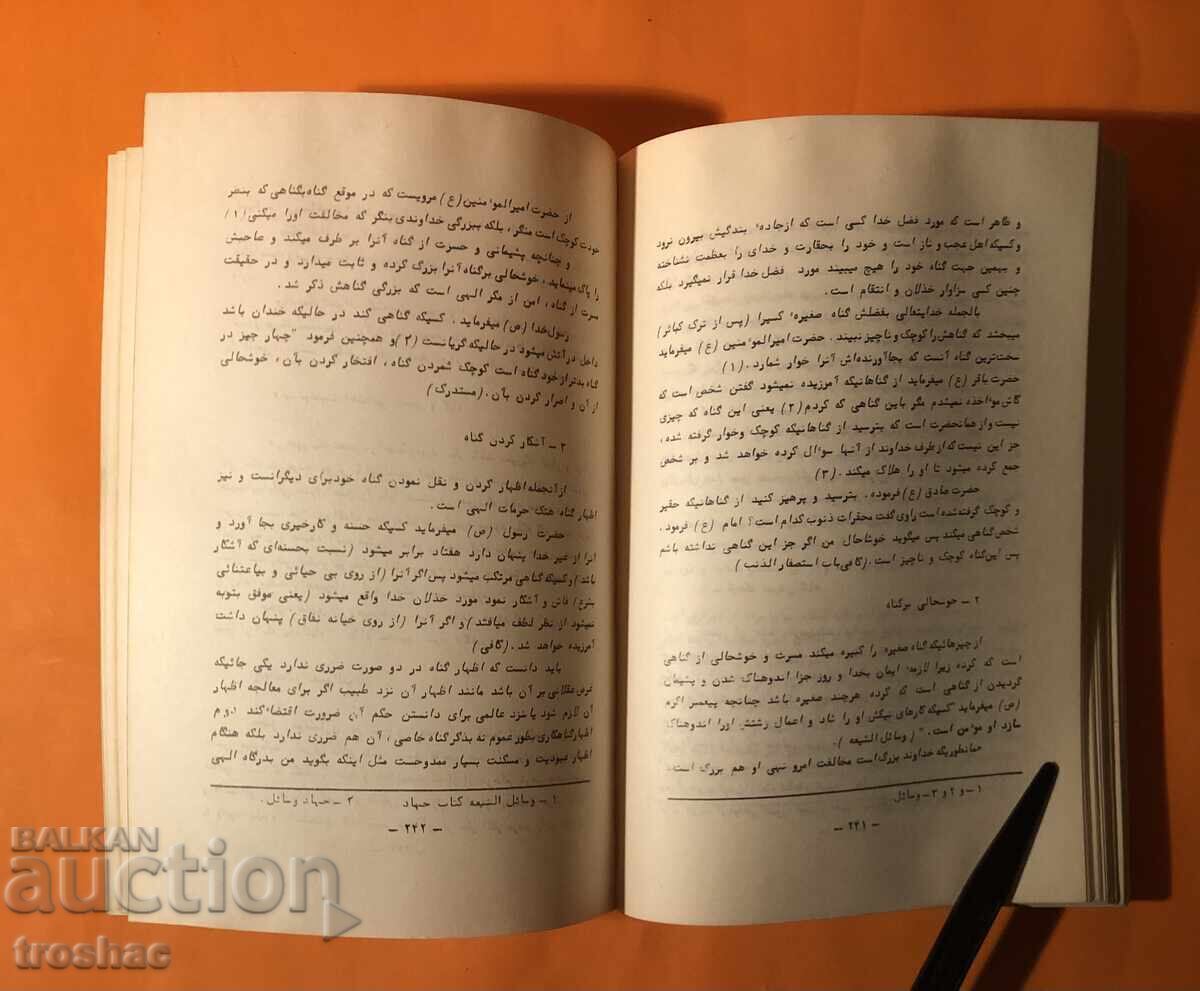 و ظاهر است که مورد فضل خدا کسی است که ازجادهٔ بندگیش بیرون نرود
و کسیکه اهل عجب و ناز است و خود را بحقارت و خدای را بعظمت نشناخته
و بهمین جهت گناه خود را هیچ میبیند مورد فضل خدا قرار نمیگیرد بلکه
چنین کسی سزاوار خذلان و انتقام است.
بالجمله خدایتعالی بفضلش گناه صغیرهٔ کسیرا (پس از ترک کبائر)
میبخشد که گناهش را کوچک و ناچیز نبیند. حضرت امیرالموٴمنین (ع) میفرماید
سخت‌ترین گناه آنست که بجاآورنده‌اش آنرا خوار شمارد. (۱)
حضرت باقر (ع) میفرماید از گناهانیکه آمرزیده نمیشود گفتن شخص است که
کاش موٴاخذه نمیشدم مگر باین گناهی که کردم (۲) یعنی این گناه که چیزی
نیست و از همانحضرت است که بترسید از گناهانیکه کوچک وخوار گرفته شده،
جز این نیست که از طرف خداوند از آنها سوٴال کرده خواهد شد و بر شخص
جمع کرده میشود تا او را هلاک میکند. (۳)
حضرت صادق (ع) فرموده. بترسید و پرهیز کنید از گناهانیکه حقیر
و کوچک گرفته شده است راوی گفت محقرات ذنوب کدام است؟ امام (ع) فرمود.
شخص گناهی میکند پس میگوید خوشاحال من اگر جز این گناهی نداشته باشم
پس این گناه کوچک و ناچیز است. (کافی باب استصغار الذنب)
۲ – خوشحالی برگناه
از چیزهائیکه گناه صغیره را کبیره میکند مسرت و خوشحالی از گناهی
است که کرده زیرا لازمهٔ ایمان بخدا و روز جزا اندوهناک شدن و پشیمان
گردیدن از گناهی است که کرده هرچند صغیره باشد چنانچه پیغمبر اکرم
(ص) میفرماید کسیکه کارهای نیکش او را شاد و اعمال زشتش اورا اندوهناک
سازد او موٴمن است." (وسائل الشیعه).
همانطوریکه خداوند بزرگ است مخالفت امرو نهی او هم بزرگ است.
۱ – و ۲ و ۳ – وسائل.
– ۲۴۱ –
از حضرت امیرالموٴمنین (ع) مرویست که در موقع گناه بگناهی که بنظر
خودت کوچک است منگر، بلکه ببزرگی خداوندی بنگر که مخالفت اورا میکنی (۱)
و چنانچه پشیمانی و حسرت از گناه آنرا بر طرف میکند و صاحبش
را پاک مینماید، خوشحالی برگناه آنرا بزرگ کرده و ثابت میدارد و در حقیقت
مسرت از گناه، امن از مکر الهی است که بزرگی گناهش ذکر شد.
رسول خدا (ص) میفرماید. کسیکه گناهی کند در حالیکه خندان باشد
داخل در آتش میشود در حالیکه گریانست (۲) و همچنین فرمود "چهار چیز در
گناه بدتر از خود گناه است کوچک شمردن گناه، افتخار کردن بآن، خوشحالی
از آن و اصرار کردن بآن. (مستدرک)
۳ – آشکار کردن گناه
ازآنجمله اظهار کردن و نقل نمودن گناه خود برای دیگرانست و نیز
اظهار گناه هتک حرمات الهی است.
حضرت رسول (ص) میفرماید کسیکه حسنه و کارخیری بجا آورد و
آنرا از غیر خدا پنهان دارد هفتاد برابر میشود (نسبت بحسنه‌ای که آشکار
باشد) و کسیکه گناهی مرتکب میشود پس اگر آنرا (از روی بی حیائی و بی‌اعتنائی
بشرع) فاش و آشکار نمود مورد خذلان خدا واقع میشود (یعنی موفق بتوبه
نمیشود از نظر لطف میافتد) و اگر آنرا (از روی حیا نه نفاق) پنهان داشت
آمرزیده خواهد شد. (کافی)
باید دانست که اظهار گناه در دو صورت ضرری ندارد یکی جائیکه
غرض عقلائی بر آن باشد مانند اظهار آن نزد طبیب اگر برای معالجه اظهار
آن لازم شود یا نزد عالمی برای دانستن حکم آن ضرورت اقتضاٴ کند دوم
اظهار گناهکاری بطور عموم نه بذکر گناه خاصی، آن هم ضرری ندارد بلکه هنگام
اظهار عبودیت و مسکنت بسیار ممدوحست مثل اینکه بگوید من بدرگاه الهی
۱ – وسائل الشیعه کتاب جهاد ۲ – جهاد وسائل.
– ۲۴۲ –
BALKAN
auction
troshac